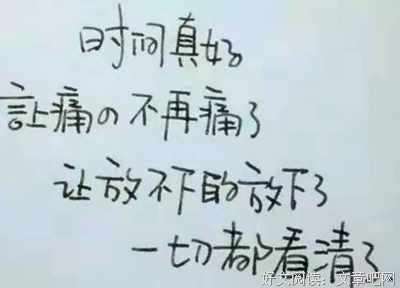 时间真好
讓痛の不再痛了
让放不下的放下了
一切都看清了
好文阅读：文章吧网